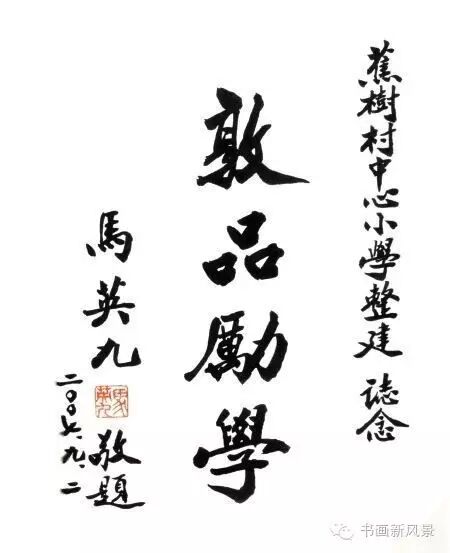 蕉樹村中心小學整建 誌念
敦品勵學
馬英九 敬題
二〇〇六.九.二
馬英九
书画新风景